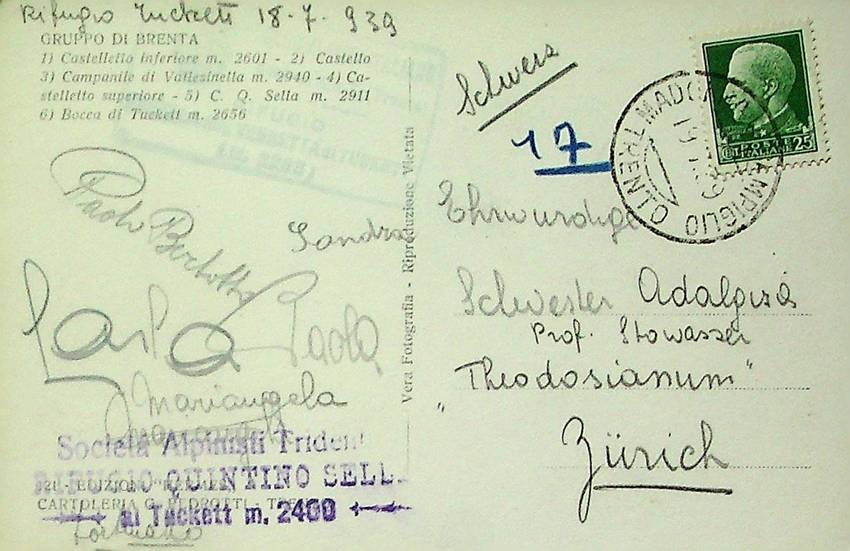 Rifugio Tuckett 18-7-939
GRUPPO DI BRENTA
1) Castelletto inferiore m. 2601 - 2) Castello
3) Campanile di Vallesinella m. 2940 - 4) Ca-
stelletto superiore - 5) C. Q. Sella m. 2911
6) Bocca di Tuckett m. 2656
Paolo Bertotti
Sandra
Carla
Paola
Mariangela
Società Alpinisti Trident
RIFUGIO QUINTINO SELL
EDIZION
CARTOLERIA G. PEDROTTI - TRE
al Tuckett m. 2400
Fortunato
Vera Fotografia - Riproduzione Vietata
Schweiz
17
25
MADONNA CAMPIGLIO
TRENTO
Ehrwürdige
Schwester Adalgisa
Prof. Stowasser
"Theodosianum"
Zürich